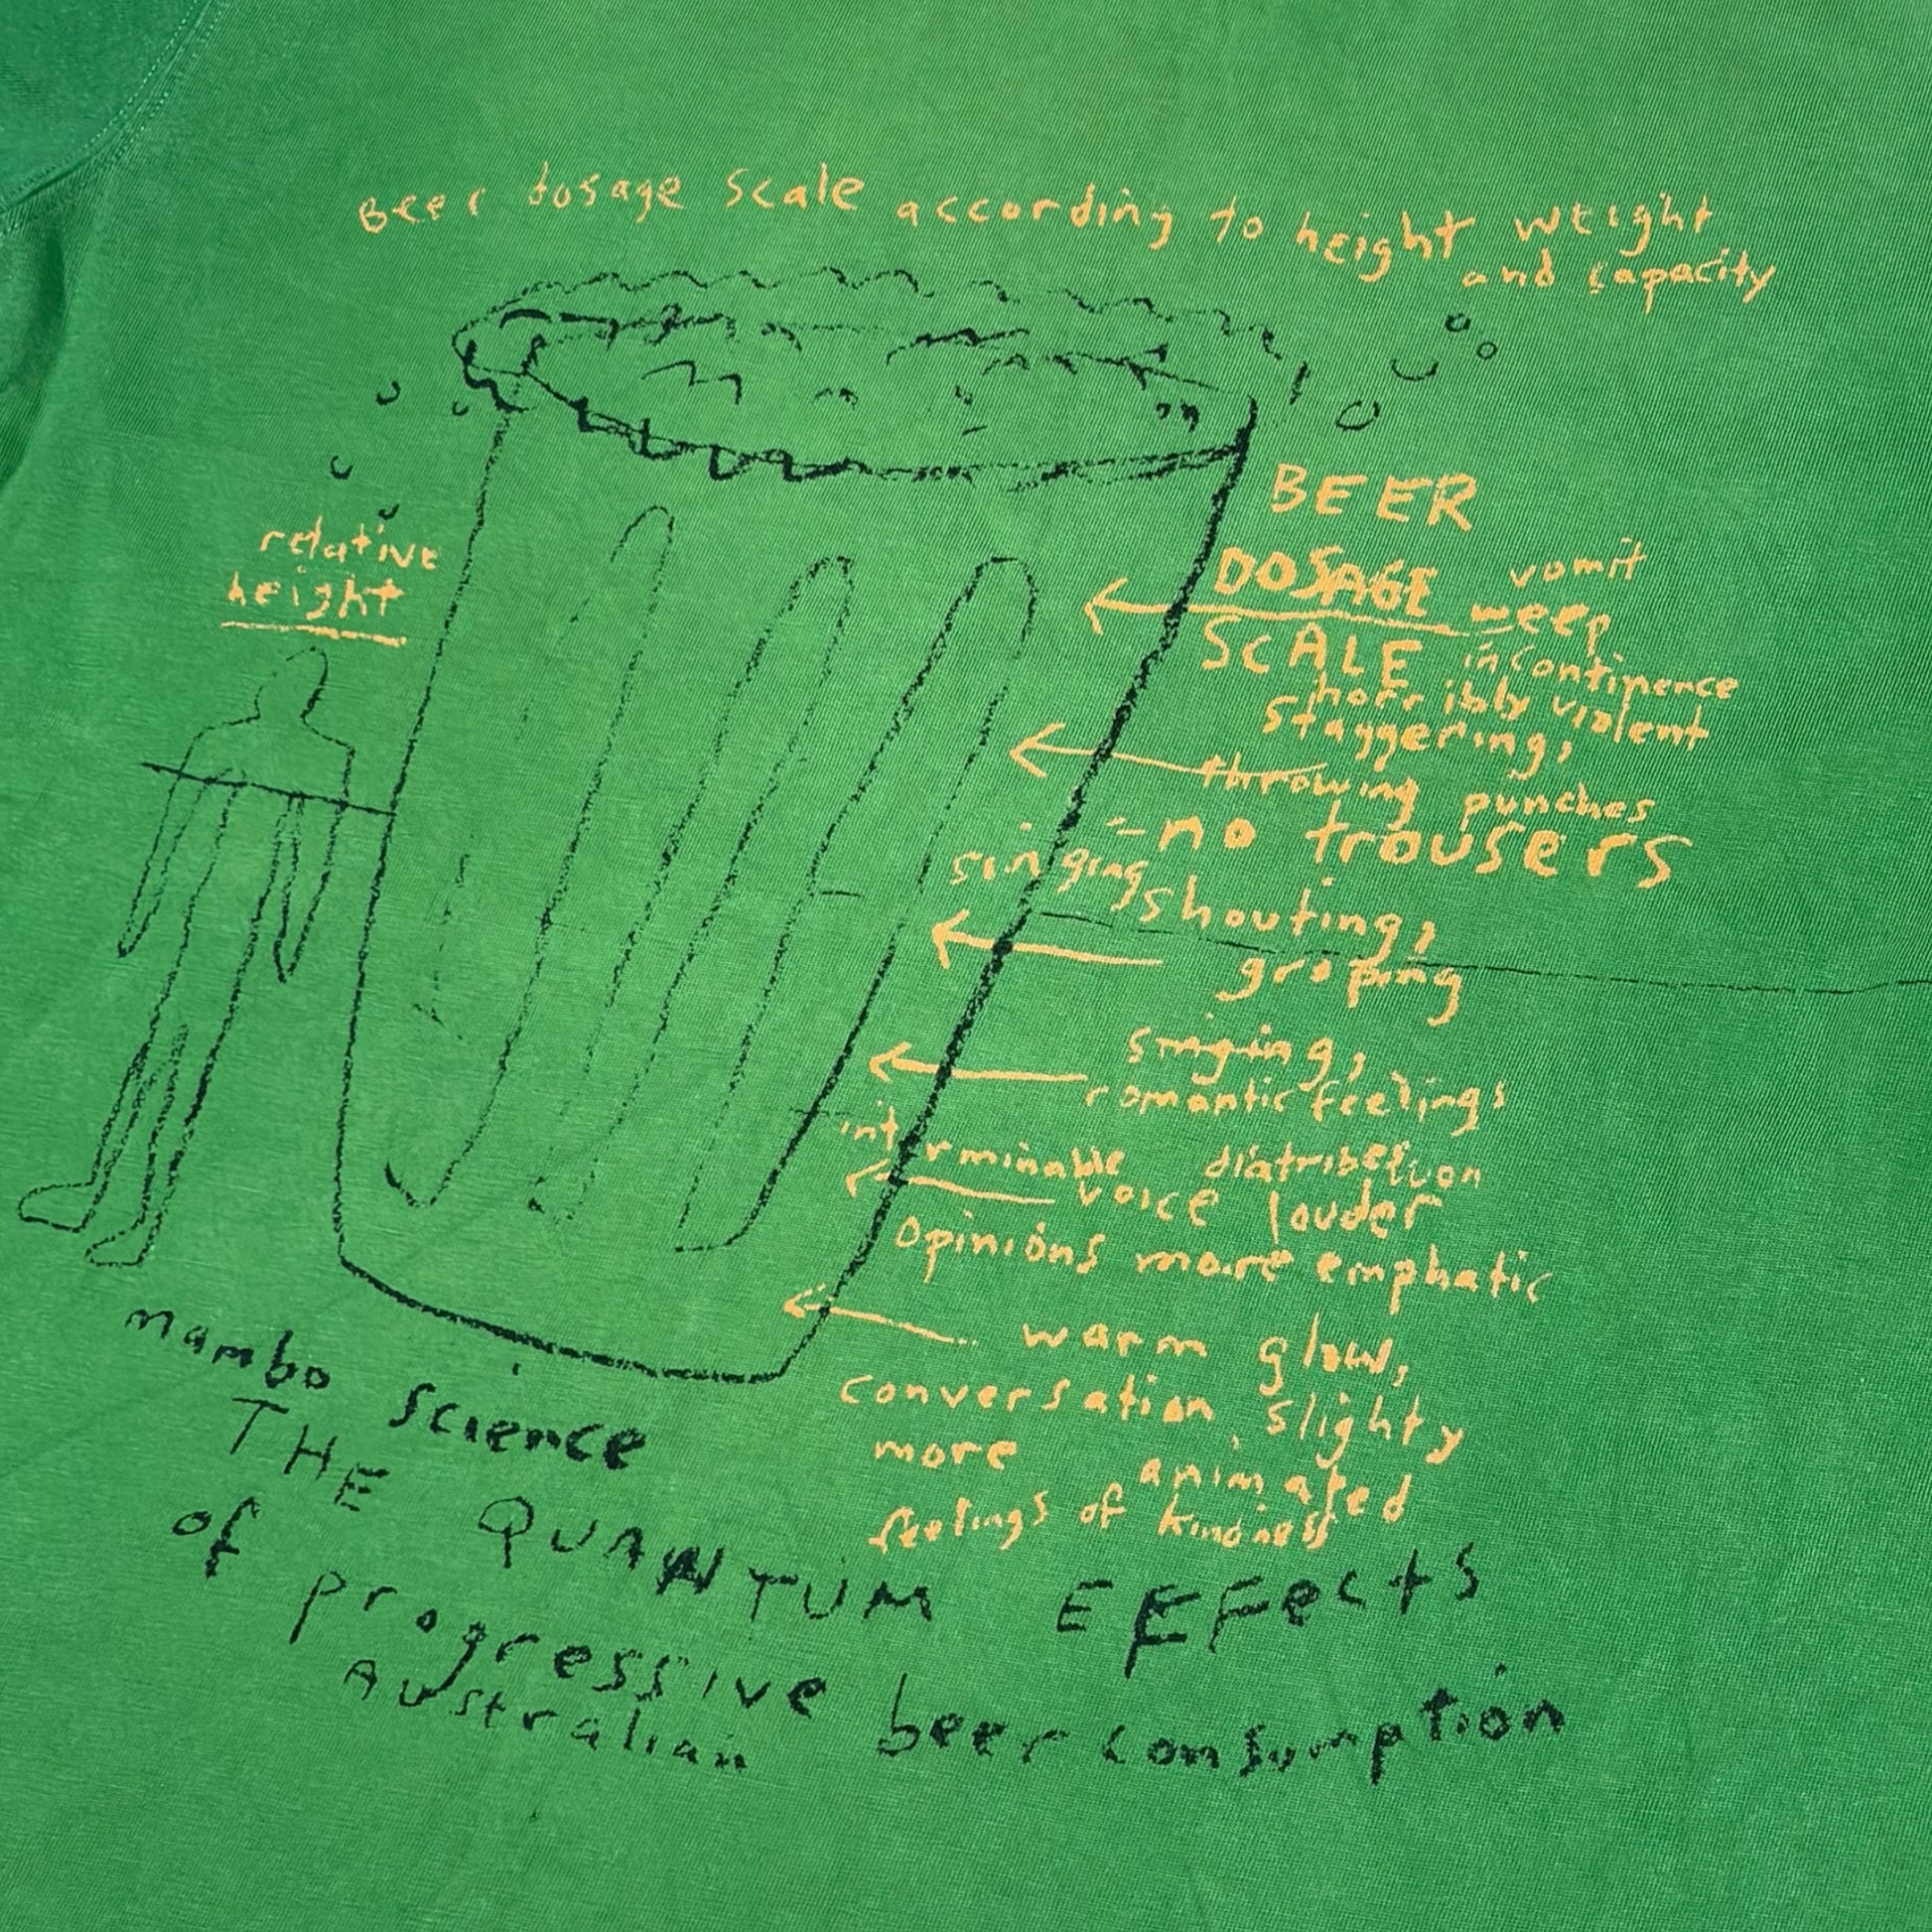 Beer dosage scale according to height weight
and capacity
BEER
DOSAGE
SCALE
relative
height
vomit
weep
incontinence
horribly violent
staggering,
throwing punches
- no trousers
singing shouting,
groping
singing,
romantic feelings
interminable diatribe
voice louder
opinions more emphatic
warm glow,
conversation slighty
more animated
feelings of kindness
mambo science
THE QUANTUM EFFects
of progressive beer consumption
Australian